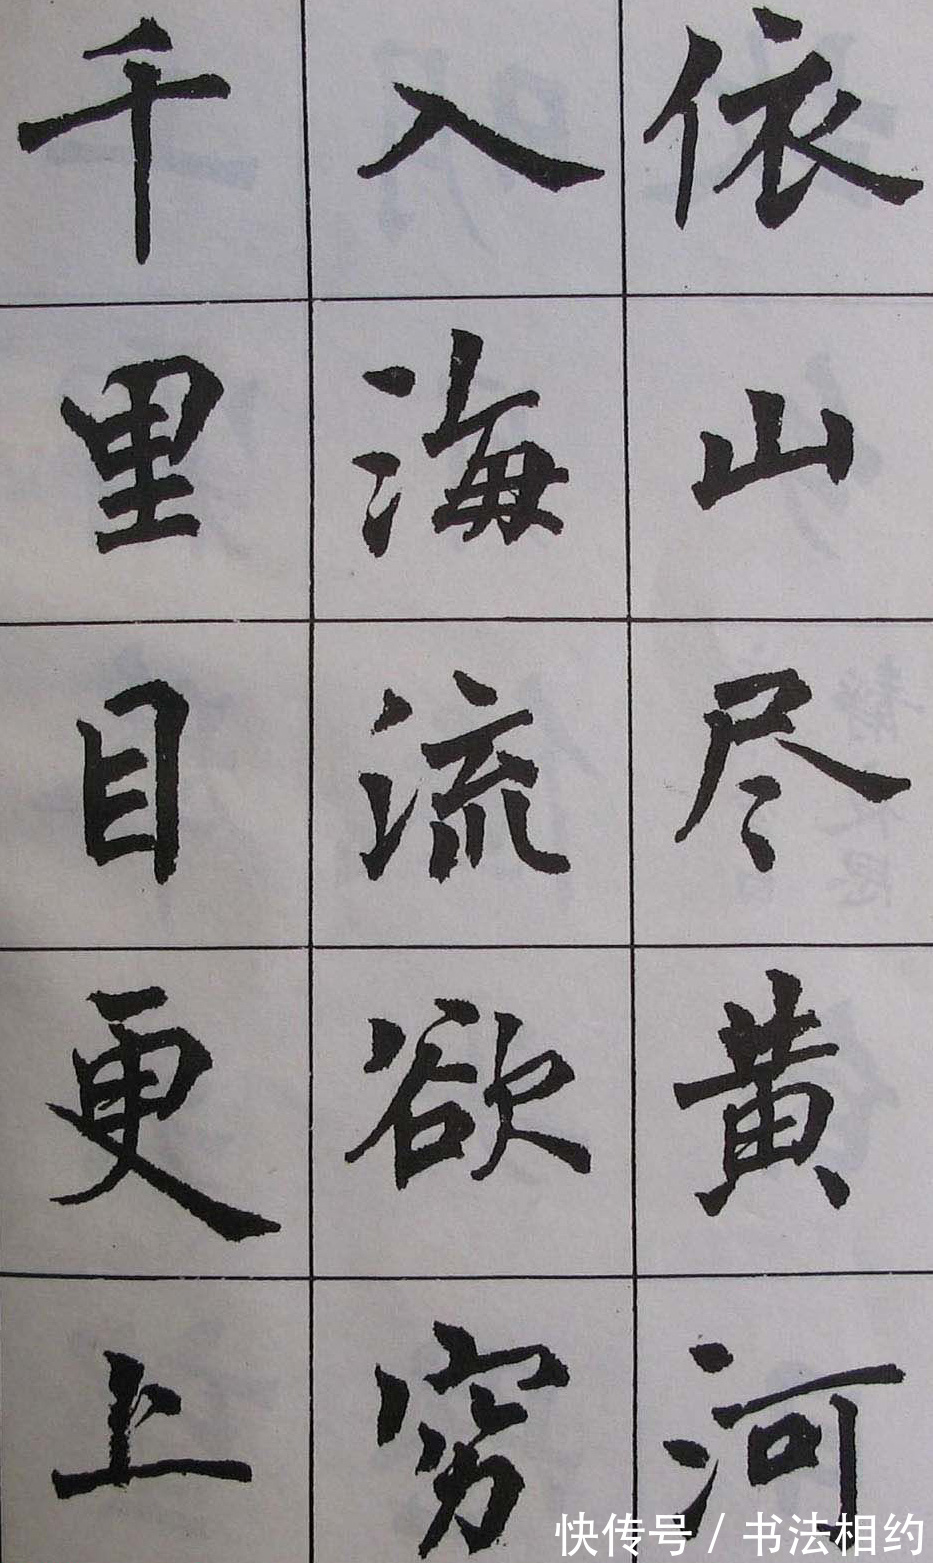 依山尽黄河
入海流欲穷
千里目更上
快传号 / 书法相约